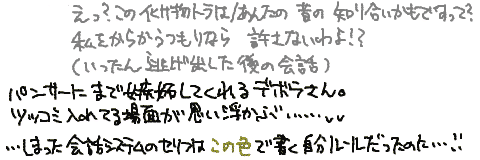 えっ？この化け物トラは/あんたの昔の知り合いかもですって？
私をからかうつもりなら 許さないわよ！？
(いったん逃げ出した後の会話)
パンサーにまで嫉妬してくれるデボラさん。
ツッコミ入れてる場面が思い浮かぶ……、、
…しまった会話システムのセリフはこの色で書く自分ルールだったのに…!!